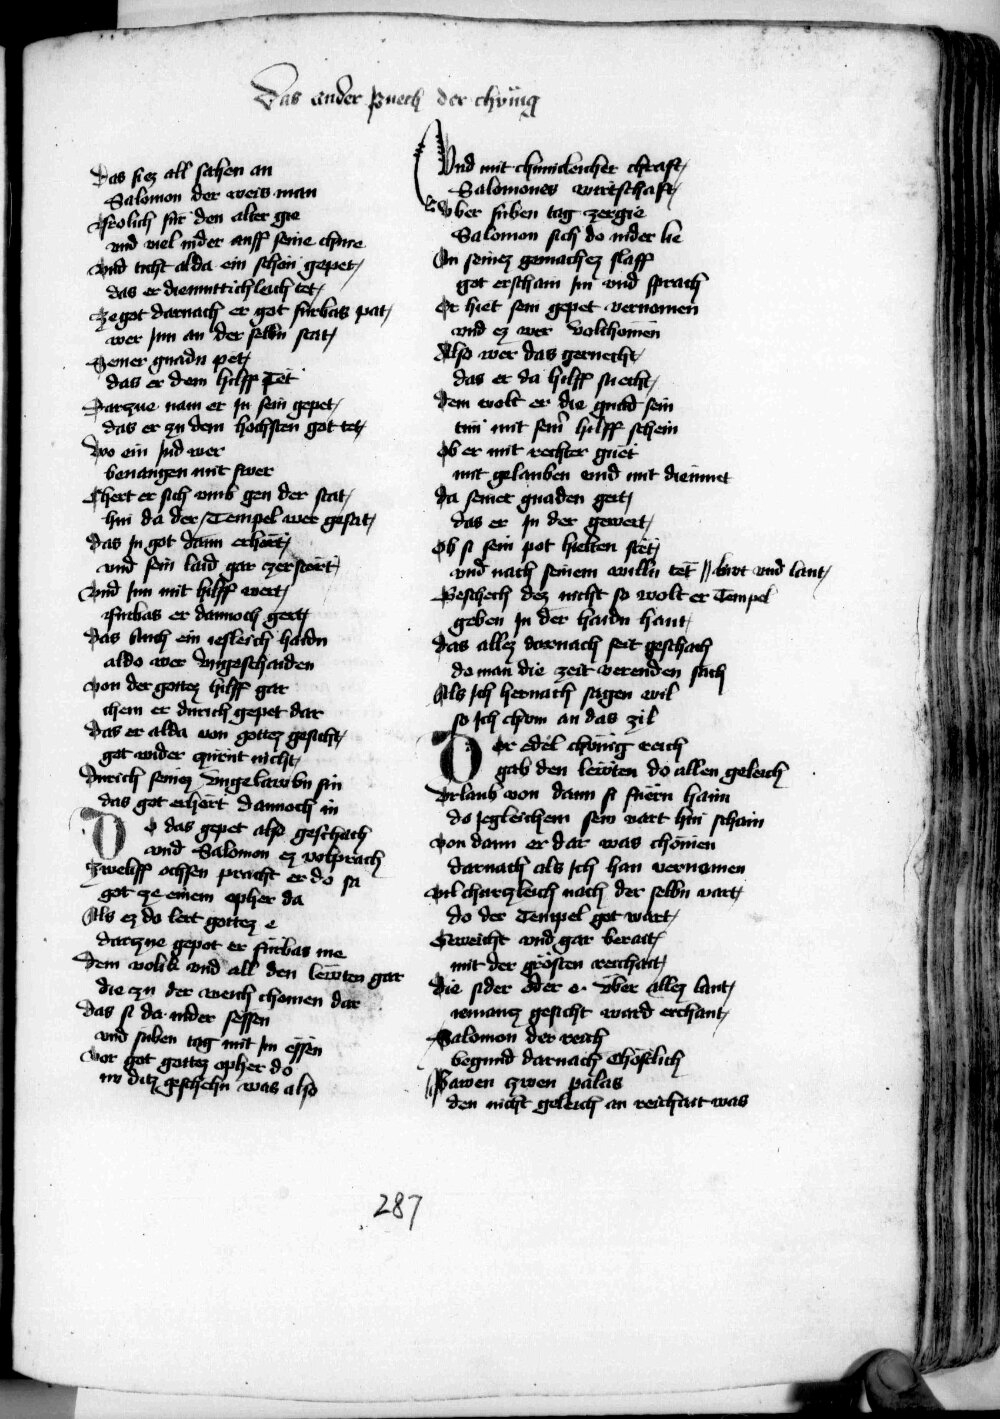 Das ander puech der chünig
Das siez all sahen an
Salomon der weis man
Frolich für den alter gie
vnd viel nider auff seine chnie
vnd ticht alda ein schon gepet
das er diemuttichleich tet
ze got darnach er got fürbas pat
wer Jm an der selbn stat
Seiner gnadn pet
das er dem hilff Tët
Darzue nam er Jn sein gepet
das er zu dem hochsten got tet
Wo ein Jud wer
beuangen mit swer
Chert er sich vmb gen der stat
hin da der Tempel wer gesatt
das Jn got dann erhört
vnd sein laid gar czerstört
Vnd Jm mit hilff wert
Fürbas er dannoch gert
das Auch ein iesleich haidn
aldo wer Vngeschaiden
von der gottez hilff gar
chem er durich gepet dar
Das er alda von gottez gesicht
got wider czürnt nicht
Durich seinez Vngelawbn sin
das got erhört dannoch in
Do das gepet also geschach
vnd Salomon ez volsprach
Zweliff ochsen pracht er do sa
got ze einem opher da
Als ez do lert gottez e
darczue gepot er fürbas me
Dem volk vnd all den lewten gar
die zu der weich chomen dar
Das si da nider sessen
vnd siben tag mit Jm essen
Vor got gottez opher do
nv ditz geschehn was also
Vnd mit chunicleicher chraft
Salomones wirtschaft
Vber siben tag zergie
Salomon sich do nider lie
In seinez gemachez slaff
got erschain Jm vnd sprach
Er hiet sein gepet vernomen
vnd ez wer Volchömen
Also wer das geruecht
das er da hilff suecht
Dem wolt er die gnad sein
tuñ mit seiner hilff schein
Ob er mit rechter guet
mit gelauben vnd mit diemuet
da seiner gnaden gert
das er Jn der gewert
Ob si sein pot hielten stët
vnd nach seinem willn tët // lewt vnd lant
Beschech dez nicht so wolt er Tempel
geben Jn der haidn hant
das allez darnach seit geschach
do man die zeit verenden sach
Als Jch hernach sagen wil
so Jch chom an das zil
Der edel chönig reich
gab den lewten do allen geleich
Vrlaub von dann si fuern haim
do Jegleichem sein vart hin schain
von dann er dar was chömen
darnach als Jch han vernomen
vil charczleich nach der selbn vart
do der Tempel got wart
Geweicht vnd gar berait
mit der grösten reichait
Die sider oder e Vber allez lant
iemancz gesicht ward erchant
Salomon der reich
begund darnach chöstlich
Pawen zwen palas
den nicht geleich an reichait was
287